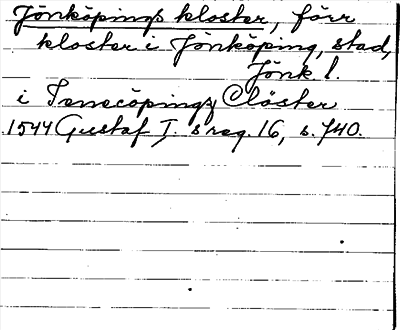 Jönköpings kloster, förr
kloster i Jönköping, stad,
Jönk l.
i Jenecöpings Clöster
1544 Gustaf I. s reg. 16, s. 740.